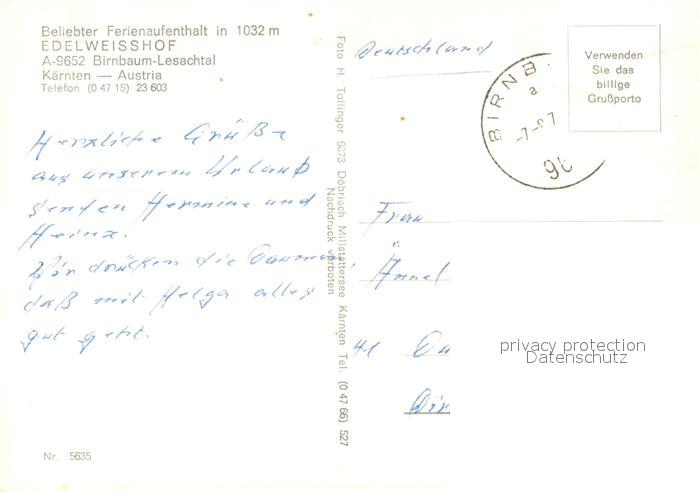 Beliebter Ferienaufenthalt in 1032 m
EDELWEISSHOF
A-9652 Birnbaum-Lesachtal
Kärnten — Austria
Telefon (0 47 15) 23 603
Herzliche Grüße
aus unserem Urlaub
senden Hermine und
Heinz.
Wir drücken die Daumen,
daß mit Helga alles
gut geht.
Nr. 5635
Foto H. Tollinger 9873 Döbriach Millstättersee Kärnten Tel. (0 47 66) 527
Nachdruck verboten
Deutschland
BIRNB
a
Verwenden
Sie das
billige
Grußporto
Frau
privacy protection
Datenschutz